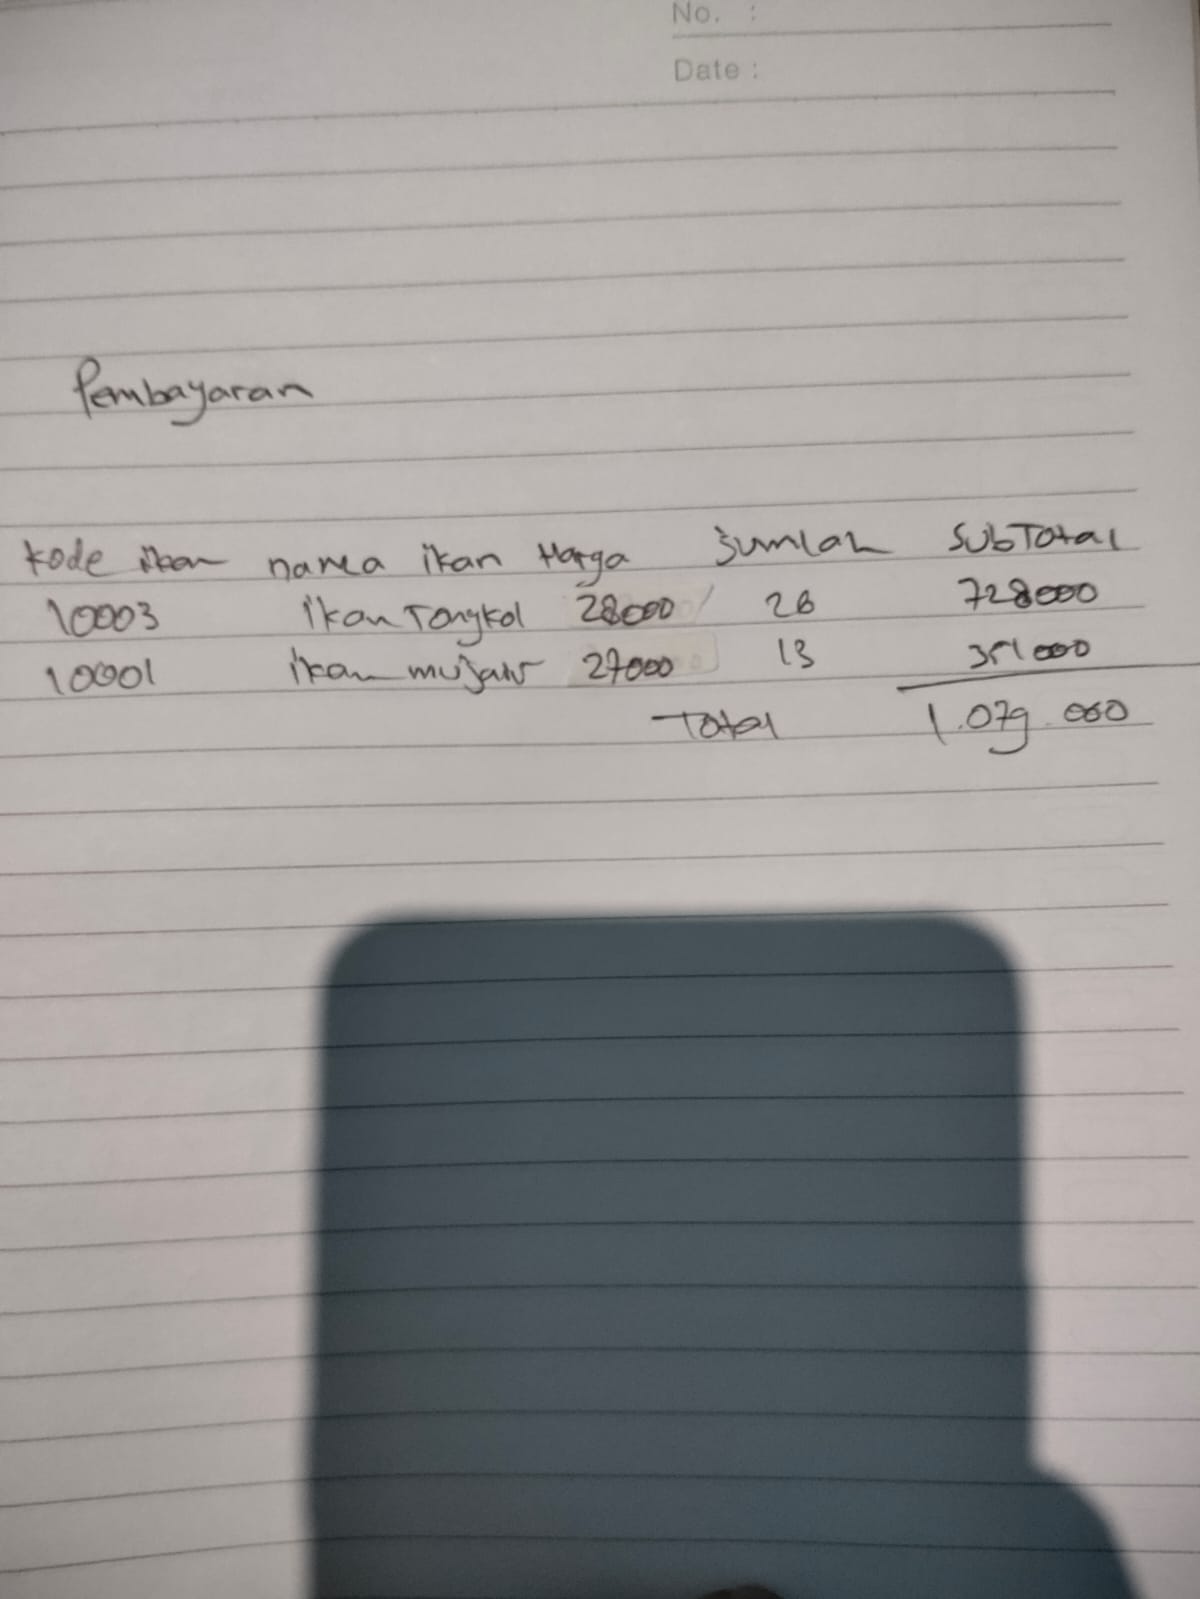 No. :
Date :
Pembayaran
kode ikan nama ikan Harga Jumlah SubTotal
10003 ikan Tongkol 28000 26 728000
10001 ikan mujair 27000 13 351000
Total 1.079.000